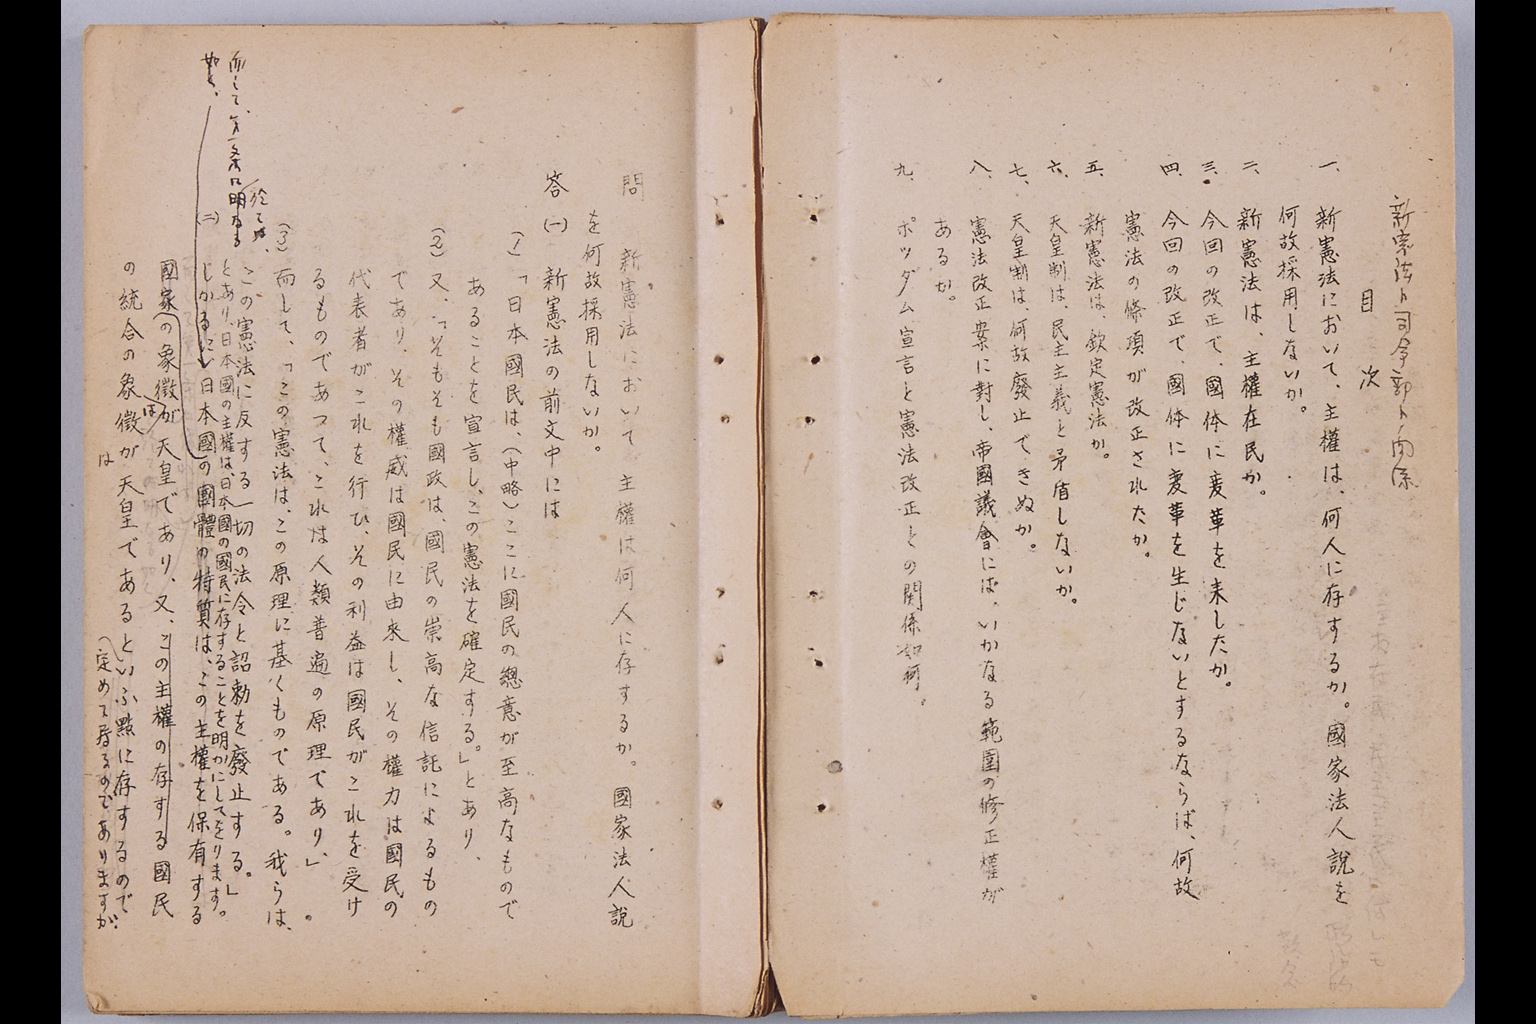 新憲法ト司令部トノ関係
目次
一、新憲法において、主權は、何人に存するか。國家法人説を
何故採用しないか。
二、新憲法は、主權在民か。
三、今回の改正で、國体に変革を来したか。
四、今回の改正で、國体に変革を生じないとするならば、何故
憲法の條項が改正されたか。
五、新憲法は、欽定憲法か。
六、天皇制は、民主主義と矛盾しないか。
七、天皇制は、何故廢止できぬか。
八、憲法改正案に對し、帝國議會には、いかなる範圍の修正權が
あるか。
九、ポツダム宣言と憲法改正との関係如何。
問 新憲法において 主權は何人に存するか。國家法人説
を何故採用しないか。
答(一) 新憲法の前文中には
(1)「日本國民は、(中略)ここに國民の總意が至高なもので
あることを宣言し、この憲法を確定する。」とあり、
(2)又、「そもそも國政は、國民の崇高な信託によるもの
であり、その權威は國民に由来し、その權力は國民の
代表者がこれを行ひ、その利益は國民がこれを受け
るものであつて、これは人類普遍の原理であり、」
(3)而して、「この憲法は、この原理に基くものである。我らは、
この憲法に反する一切の法令と詔勅を廢止する。」
とあり、日本國の主權は、日本國の國民に存することを明かにしてをります。
而して、第一条に明なる
於ては、
如く、
(二)しかるに、日本國の國體の特質は、この主權を保有する
國家の象徴が天皇であり、又、この主權の存する國民
は
の統合の象徴が天皇であるといふ點に存するので
は
(定めて居るのでありますが、